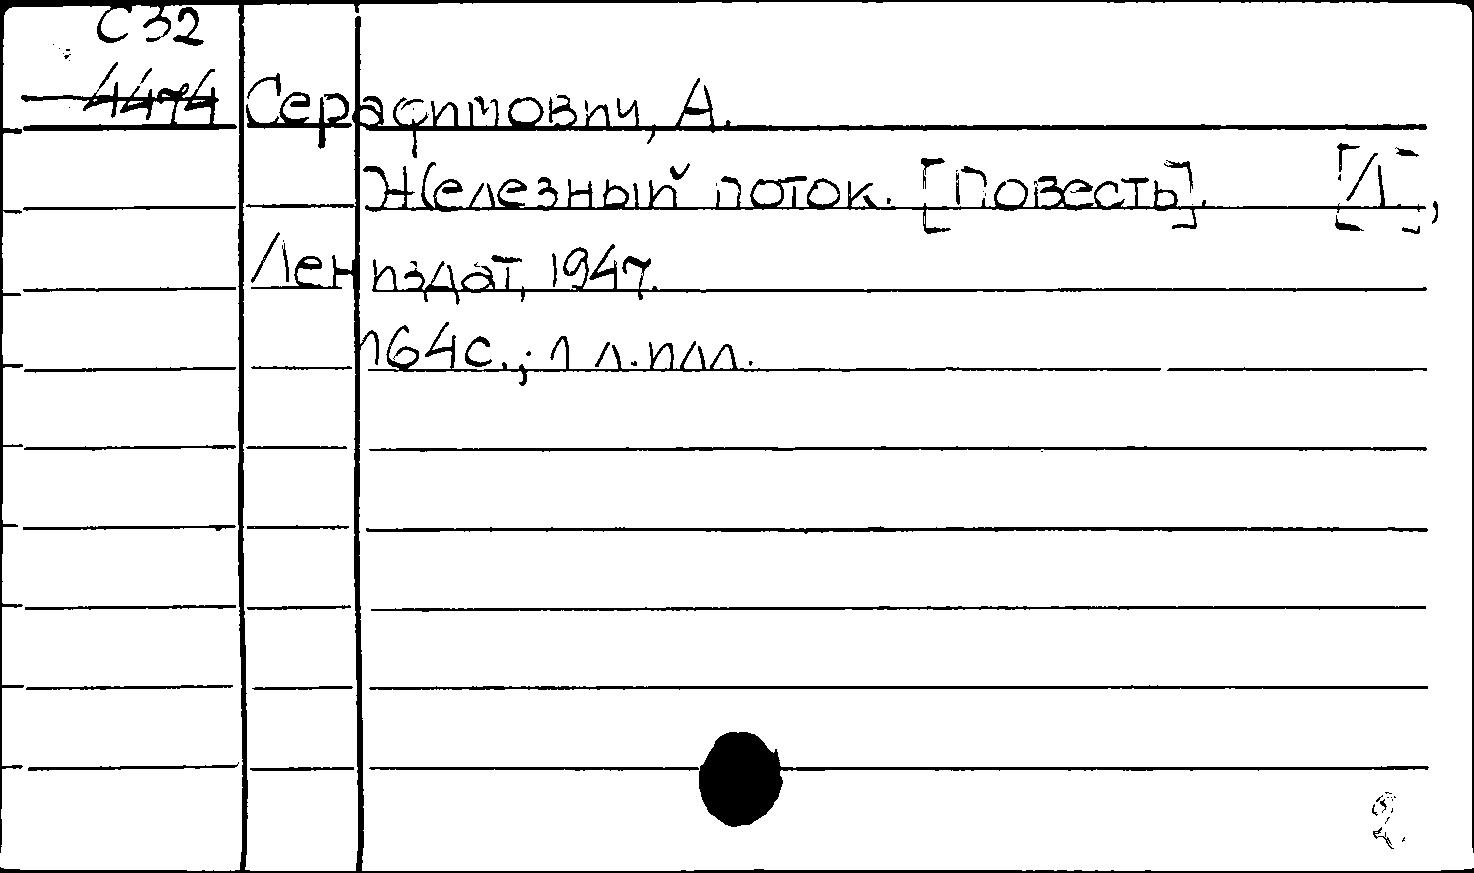 С32
4474 Серафимович, А.
Железный поток. [Повесть]. [Л.],
Лениздат, 1947.
164с.; 1 л. илл.
2.